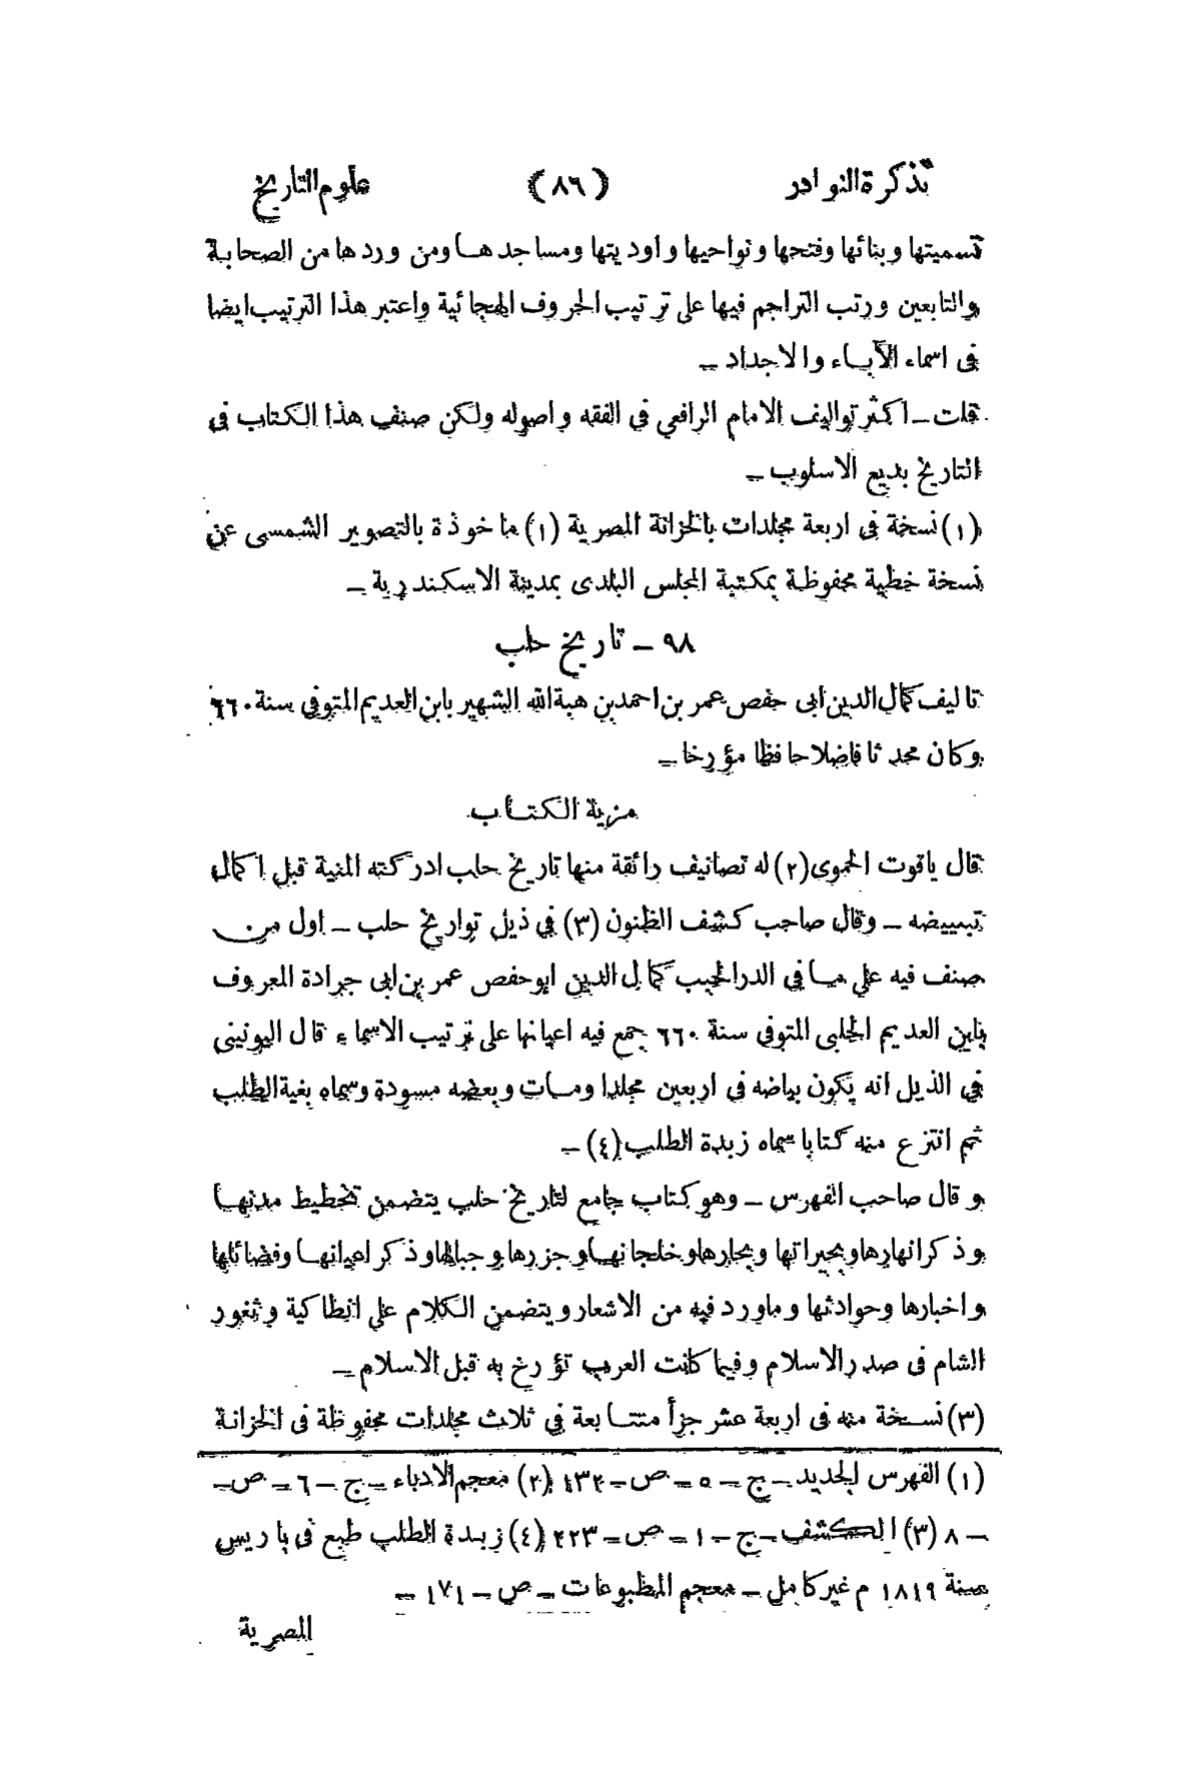 تذكرة النوادر (٨٦) علوم التاريخ
تسميتها وبنائها وفتحها ونواحيها واوديتها ومساجدها ومن وردها من الصحابة
والتابعين ورتب التراجم فيها على ترتيب الحروف الهجائية واعتبر هذا الترتيب ايضا
فى اسماء الآباء والاجداد ــ
قلت ــ اكثر تواليف الامام الرافعي في الفقه واصوله ولكن صنف هذا الكتاب فى
التاريخ بديع الاسلوب ــ
(١) نسخة فى اربعة مجلدات بالخزانة المصرية (١) ماخوذة بالتصوير الشمسى عن
نسخة خطية محفوظة بمكتبة المجلس البلدى بمدينة الاسكندرية ــ
٩٨ ــ تاريخ حلب
تاليف كمال الدين ابى حفص عمر بن احمد بن هبة الله الشهير بابن العديم المتوفي سنة ٦٦٠
وكان محدثا فاضلا حافظا مؤرخا ــ
مزية الكتاب
قال ياقوت الحموى (٢) له تصانيف رائقة منها تاريخ حلب ادركته المنية قبل اكمال
تبييضه ــ وقال صاحب كشف الظنون (٣) في ذيل تواريخ حلب ــ اول من
صنف فيه علي ما في الدر الحبب كمال الدين ابو حفص عمر بن ابى جرادة المعروف
بابن العديم الحلبى المتوفى سنة ٦٦٠ جمع فيه اعيانها على ترتيب الاسماء قال اليونينى
في الذيل انه يكون بياضه فى اربعين مجلدا ومات وبعضه مسودة وسماه بغية الطلب
ثم انتزع منه كتابا سماه زبدة الطلب (٤) ــ
وقال صاحب الفهرس ــ وهو كتاب جامع لتاريخ حلب يتضمن تخطيط مدنها
وذكر انهارها وبحيراتها وبحارها وخلجانها وجزرها وجبالها وذكر اعيانها وفضائلها
واخبارها وحوادثها وماورد فيه من الاشعار ويتضمن الكلام على انطاكية وثغور
الشام فى صدر الاسلام وفيما كانت العرب تؤرخ به قبل الاسلام ــ
(٣) نسخة منه فى اربعة عشر جزأ متتابعة في ثلاث مجلدات محفوظة فى الخزانة
(١) الفهرس الجديد ــ ج ــ ٥ ــ ص ــ ١٣٢ (٢) معجم الادباء ــ ج ــ ٦ ــ ص ــ
ــ ٨ (٣) الكشف ــ ج ــ ١ ــ ص ــ ٢٢٣ (٤) زبدة الطلب طبع فى باريس
سنة ١٨١٩ م غير كامل ــ معجم المطبوعات ــ ص ــ ١٧١ ــ
المصرية